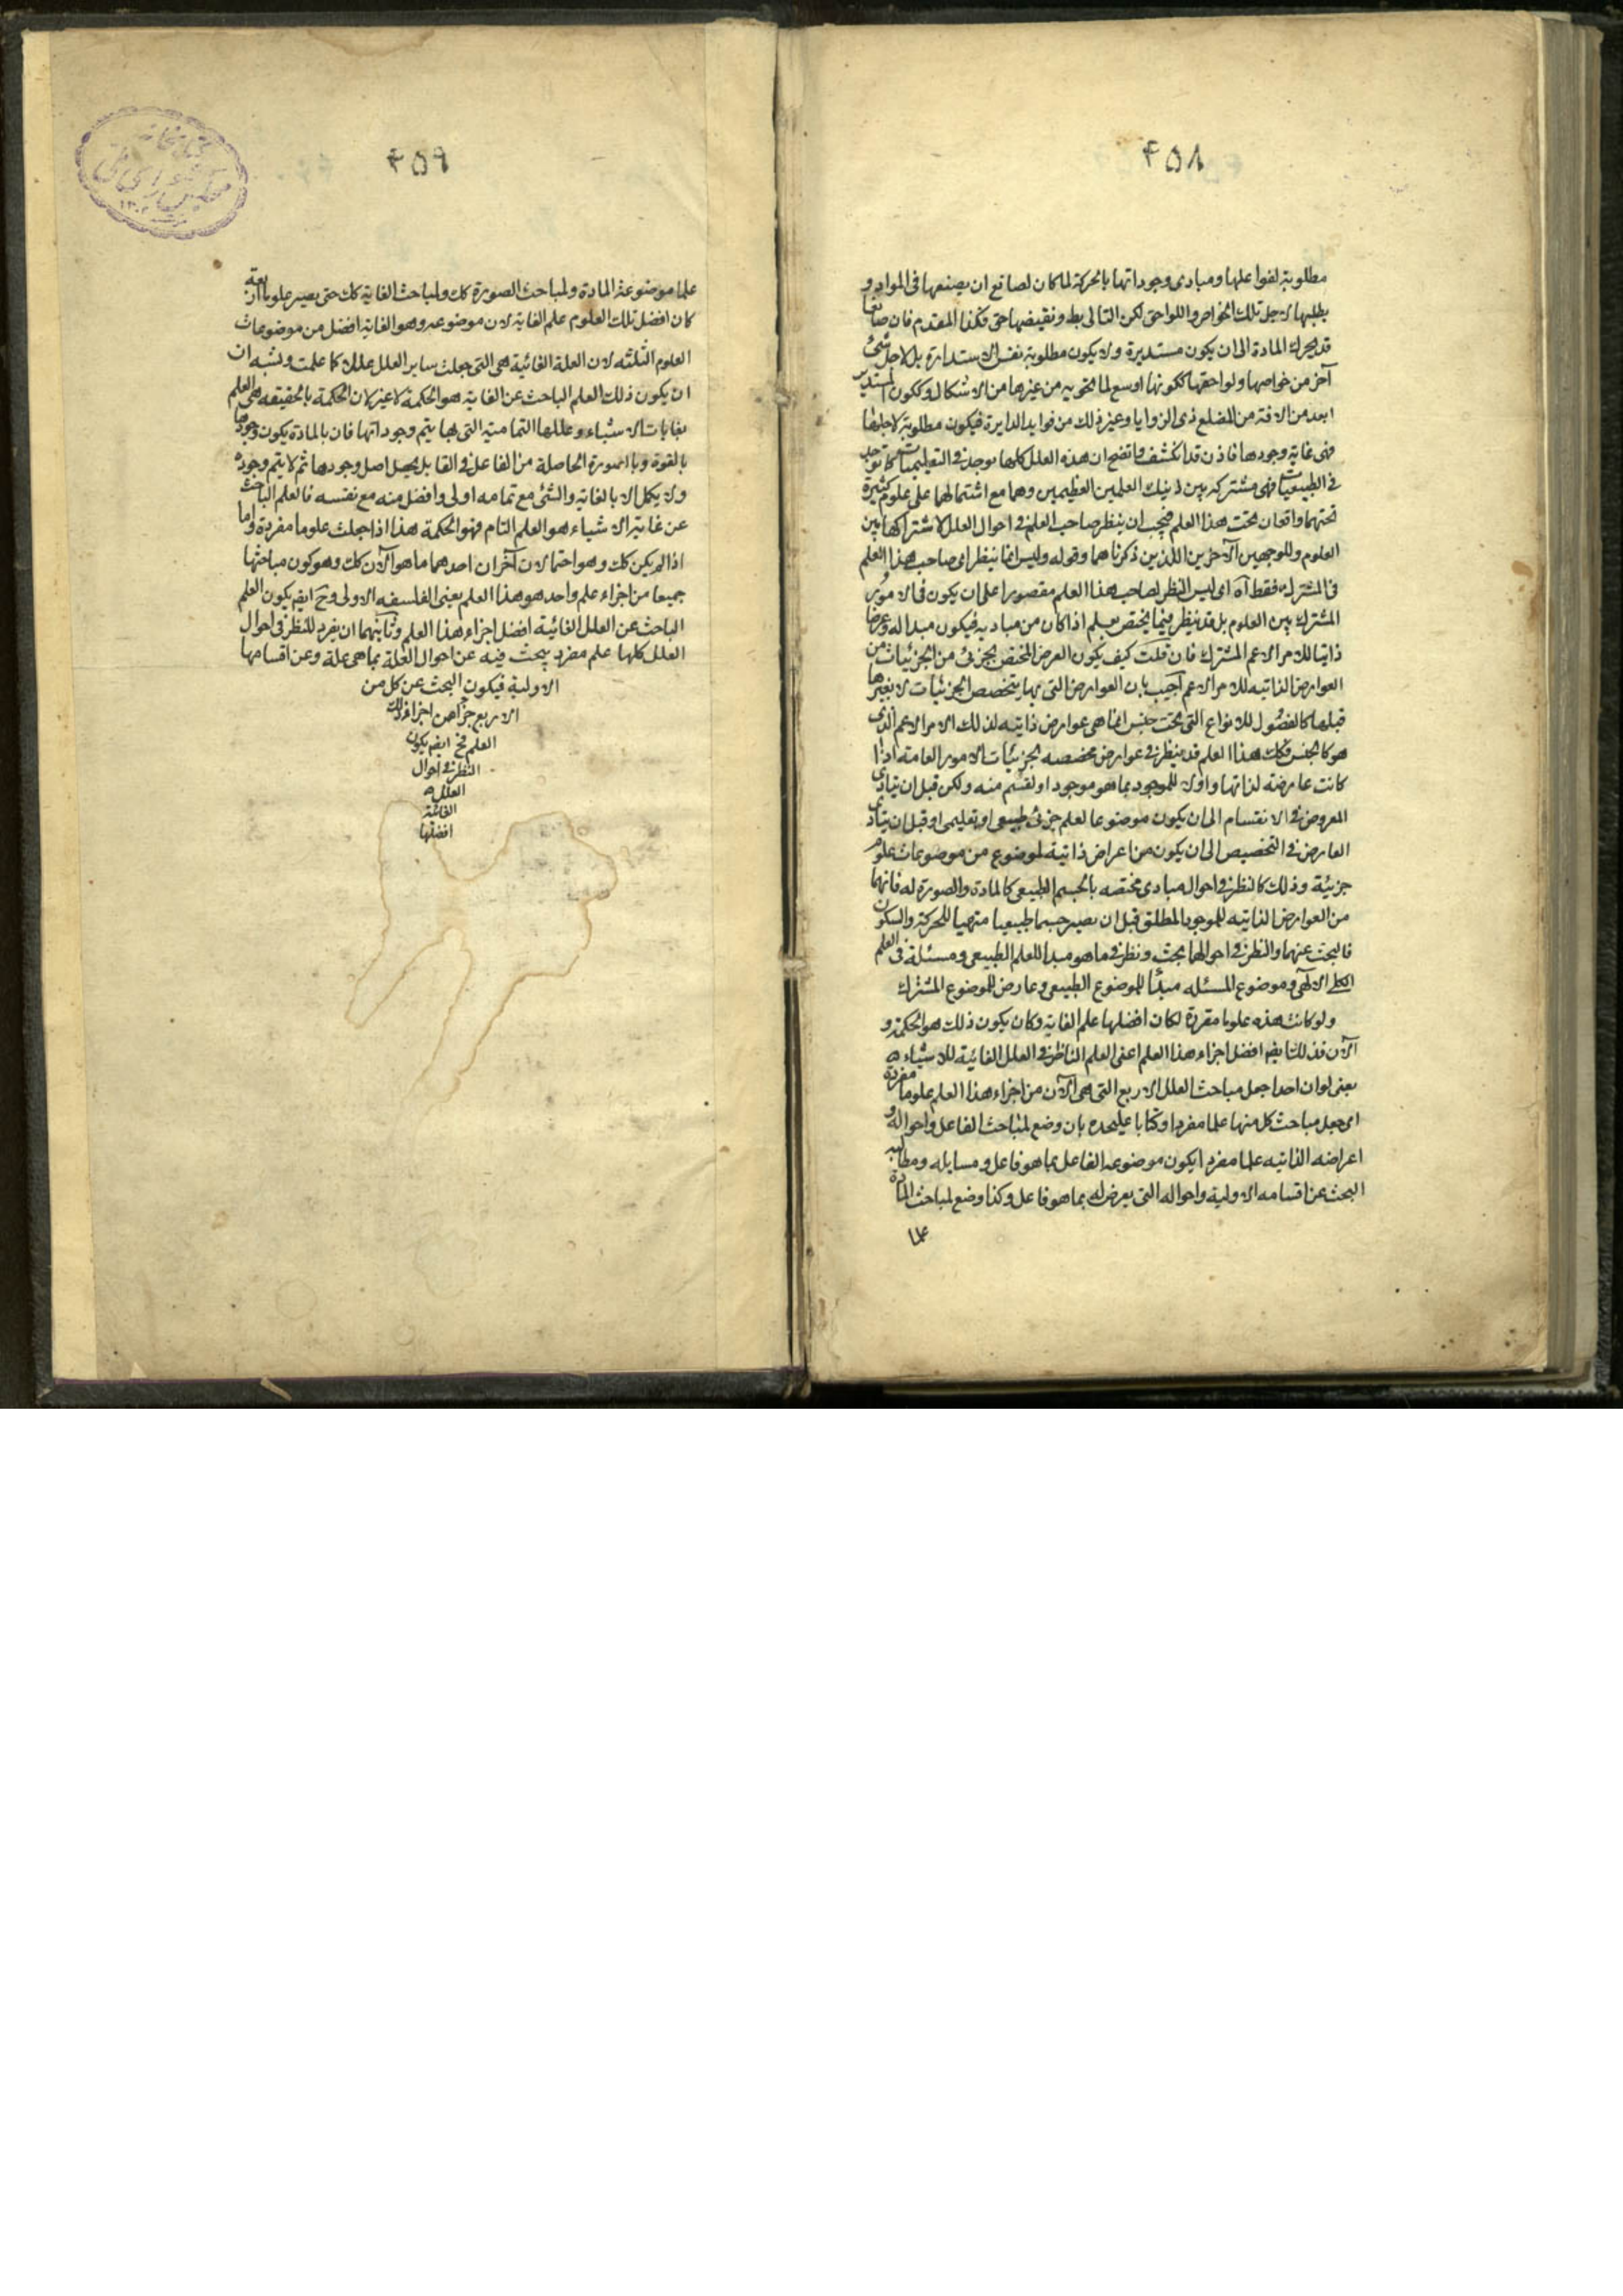 ۴۵۸
مطلوبة لفواعلها ومبادى وجوداتها بالحركة لما كان لصانع ان يصنعها فى المواد و
يطلبها لاجل تلك الخواص واللواحق لكن التالى بط ونقيضها حق فكذا المقدم فان صانعا
قد يحرك المادة الى ان يكون مستديرة ولا يكون مطلوبة نفس الاستدارة بل لاجل شئ
آخر من خواصها ولواحقها ككونها اوسع لما تحويه من غيرها من الاشكال وككون المستدير
ابعد من الافة من المضلع ذى الزوايا وغير ذلك من فوايد الدايرة فيكون مطلوبة لاجلها
فهى غاية وجودها فاذن قد انكشف واتضح ان هذه العلل كلها توجد فى التعليميات كما توجد
فى الطبيعيات فهى مشتركه بين ذينك العلمين العظيمين وهما مع اشتمالهما على علوم كثيرة
تحتهما واقعان تحت هذا العلم فيجب ان ينظر صاحب العلم فى احوال العلل لاشتراكها بين
العلوم وللوجهين الآخرين اللذين ذكرناهما وقوله وليس انما ينظر اى صاحب هذا العلم
فى المشترك فقط آه اى ليس النظر لصاحب هذا العلم مقصورا على ان يكون فى الامور
المشترك بين العلوم بل قد ينظر فيما يختص بعلم اذا كان من مباديه فيكون مبدا له وعرضا
ذاتيا للامر الاعم المشترك فان قلت كيف يكون العرض المختص بجزئى من الجزئيات من
العوارض الذاتيه للامر الاعم اجيب بان العوارض التى بها يتخصص الجزئيات لا بغيرها
قبلها كالفصول للانواع التى تحت جنس انما هى عوارض ذاتيه لذلك الامر الاعم الذى
هو كالجنس فكك هذا العلم قد ينظر فى عوارض مخصصه لجزئيات الامور العامة اذا
كانت عارضة لذاتها واولا للموجود بما هو موجود او لقسم منه ولكن قبل ان يتادى
المعروض فى الانقسام الى ان يكون موضوعا لعلم جزئى طبيعى او تعليمى او قبل ان يتادى
العارض فى التخصيص الى ان يكون من اعراض ذاتية لموضوع من موضوعات علوم
جزئية وذلك كالنظر فى احوال مبادى مختصه بالجسم الطبيعى كالمادة والصورة له فانهما
من العوارض الذاتيه للموجود المطلق قبل ان يصير جسما طبيعيا متهيا للحركة والسكون
فالبحث عنهما والنظر فى احوالهما بحث ونظر فى ما هو مبدا للعلم الطبيعى ومسئلة فى العلم
الكلى الالهى وموضوع المسئله مبدئا للموضوع الطبيعى وعارض للموضوع المشترك
ولو كانت هذه علوما مفردة لكان افضلها علم الغاية وكان يكون ذلك هو الحكمة و
الآن فذلك ايضا افضل اجزاء هذا العلم اعنى العلم الناظر فى العلل الغائية للاشياء ه
يعنى لو ان احدا جعل مباحث العلل الاربع التى هى الآن من اجزاء هذا العلم علوما مفردة
اى جعل مباحث كل منها علما مفردا وكتابا عليحده بان وضع لمباحث الفاعل واحواله و
اعراضه الذاتيه علما مفردا يكون موضوعه الفاعل بما هو فاعل ومسايله ومطالبه
البحث عن اقسامه الاولية واحواله التى يعرض له بما هو فاعل وكذا وضع لمباحث المادة
علما
۴۵۹
علما موضوعه المادة ولمباحث الصورة كك ولمباحث الغاية كك حتى يصير علوما اربعة
كان افضل تلك العلوم علم الغاية لان موضوعه وهو الغاية افضل من موضوعات
العلوم الثلثه لان العلة الغائية هى التى جعلت ساير العلل عللا كما علمت ويشبه ان
ان يكون ذلك العلم الباحث عن الغاية هو الحكمة لا غير لان الحكمة بالحقيقه هى العلم
بغايات الاشياء وعللها التمامية التى بها يتم وجوداتها فان بالمادة يكون وجودها
بالقوة وبالصورة الحاصلة من الفاعل فى القابل يحصل اصل وجودها ثم لا يتم وجوده
ولا يكمل الا بالغاية والشئ مع تمامه اولى وافضل منه مع نفسه فالعلم الباحث
عن غاية الاشياء هو العلم التام فهو الحكمة هذا اذا جعلت علوما مفردة واما
اذا لم يكن كك وهو احتمالان آخران احدهما ما هو الآن كك وهو كون مباحثها
جميعا من اجزاء علم واحد هو هذا العلم يعنى الفلسفه الاولى وح ايضا يكون العلم
الباحث عن العلل الغائية افضل اجزاء لهذا العلم وثانيهما ان يفرد للنظر فى احوال
العلل كلها علم مفرد يبحث فيه عن احوال العلة بما هى علة وعن اقسامها
الاولية فيكون البحث عن كل من
الاربع جزاً من اجزاء ذلك
العلم فح ايضا يكون
النظر فى احوال
العلل ه
الغائية
افضلها
كتابخانه
مجلس شوراى ملى